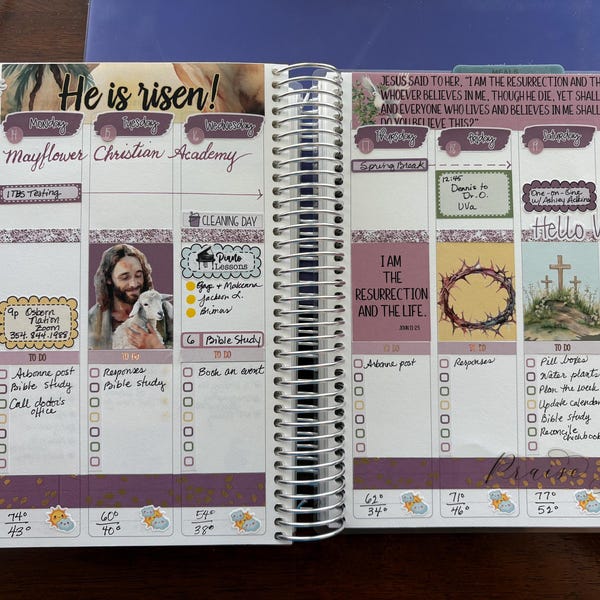 He is risen!
Monday
Tuesday
Wednesday
15
Mayflower Christian Academy
ITBS Testing
CLEANING DAY
Piano
Lessons
Jackson L.
9p Osborn
Nation
Zoom
6 Bible Study
TO DO
TO DO
TO DO
Arbonne post
Bible Study
Call doctor's
office
Responses
Bible study
Book an event
74°
43°
60°
40°
54°
38°
MEALS
JESUS SAID TO HER, "I AM THE RESURRECTION AND TH
WHOEVER BELIEVES IN ME, THOUGH HE DIE, YET SHALL
AND EVERYONE WHO LIVES AND BELIEVES IN ME SHALL
DO YOU BELIEVE THIS?"
Thursday
Friday
Saturday
17
18
19
Spring Break
12:45
Dennis to
Dr. O.
UVA
One-on-One
w/ Ashley Adkins
Hello W
I AM
THE
RESURRECTION
AND THE LIFE.
JOHN 11:25
TO DO
TO DO
TO DO
Arbonne post
Responses
Pill boxes
Water plants
Plan the week
Update calendar
Bible study
Reconcile
checkbook
Praise
62°
34°
71°
46°
77°
52°